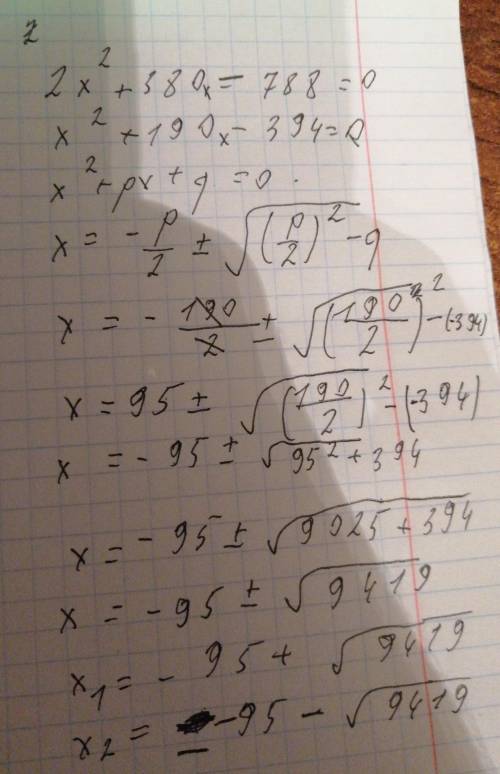 2
2x² + 380x - 788 = 0
x² + 190x - 394 = 0
x² + px + q = 0.
x = - p/2 ± √((p/2)² - q
x = - 190/2 ± √((190/2)² - (-394)
x = 95 ± √((190/2)² - (-394)
x = - 95 ± √(95² + 394
x = - 95 ± √(9025 + 394
x = - 95 ± √9419
x₁ = - 95 + √9419
x₂ = - 95 - √9419